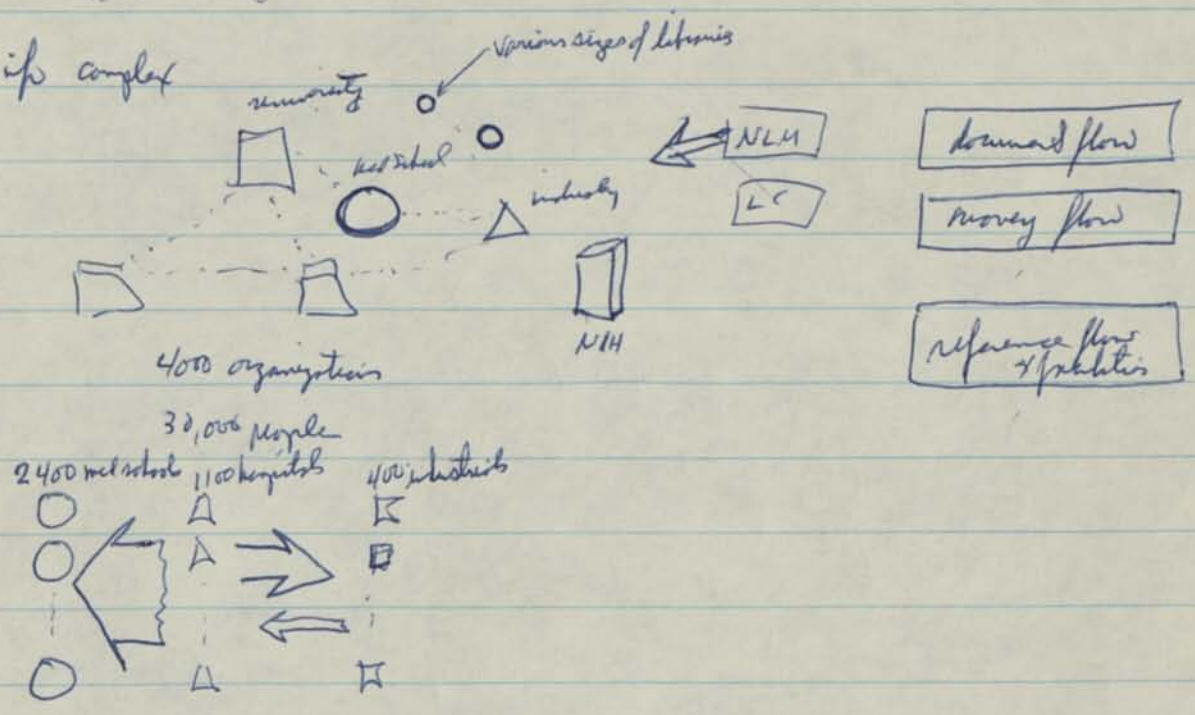 info complex
university
various sizes of libraries
med school
industry
NLM
LC
NIH
document flow
money flow
reference flow
& facilities
4000 organizations
30,000 people
2400 med schools 1100 hospitals 400 industrials